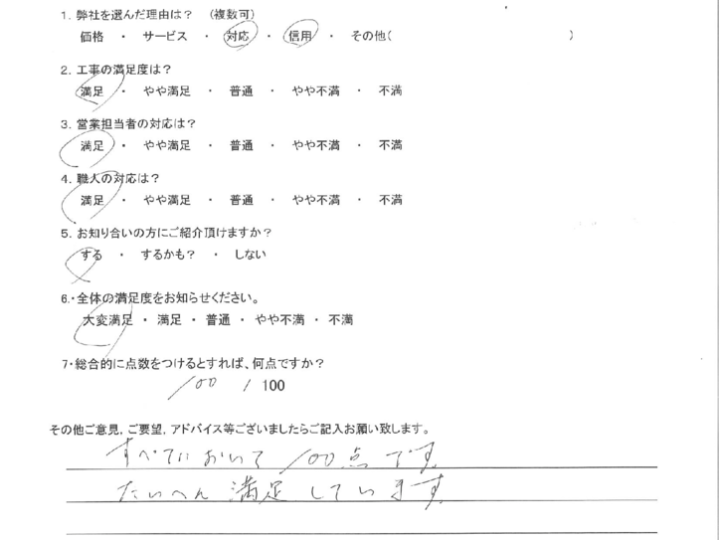 1. 弊社を選んだ理由は? (複数可)
価格 ・ サービス ・ 対応 ・ 信用 ・ その他( )
2. 工事の満足度は?
満足 ・ やや満足 ・ 普通 ・ やや不満 ・ 不満
3. 営業担当者の対応は?
満足 ・ やや満足 ・ 普通 ・ やや不満 ・ 不満
4. 職人の対応は?
満足 ・ やや満足 ・ 普通 ・ やや不満 ・ 不満
5. お知り合いの方にご紹介頂けますか?
する ・ するかも? ・ しない
6.・全体の満足度をお知らせください。
大変満足 ・ 満足 ・ 普通 ・ やや不満 ・ 不満
7・総合的に点数をつけるとすれば、何点ですか?
100 / 100
その他ご意見, ご要望, アドバイス等ございましたらご記入お願い致します。
すべてにおいて 100点です
たいへん 満足 しています